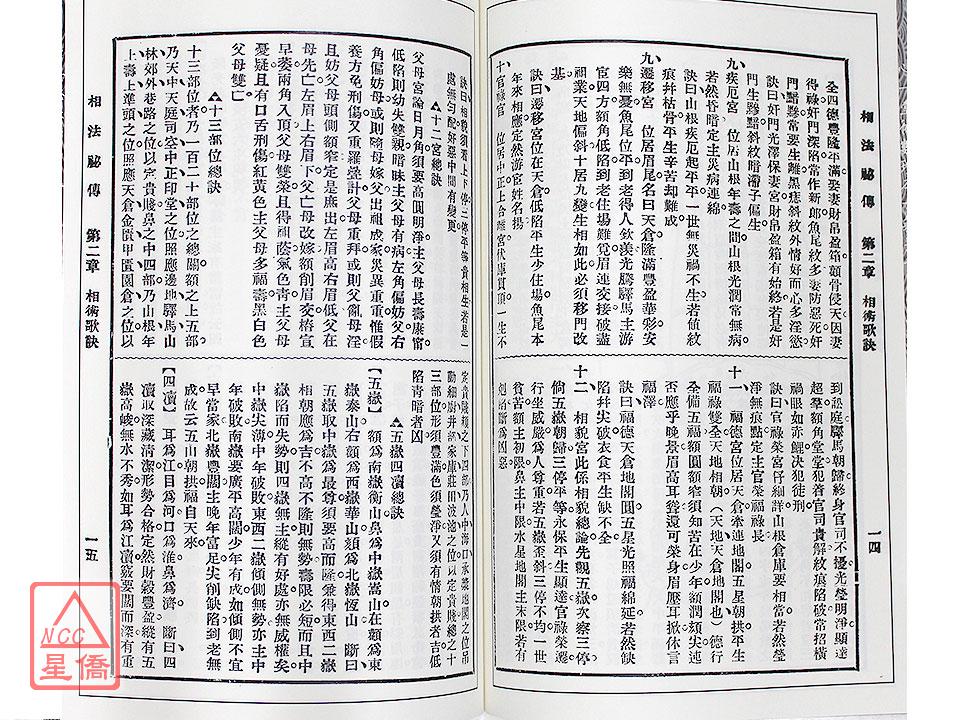 相法祕傳　第二章　相術歌訣
一四
全四德豐隆平滿娶妻財帛盈箱顴骨侵天因妻
得祿奸門深陷當作新郎魚尾紋多妻防惡死奸
門黯黲常要生離黑痣斜紋外情好而心多淫慾
訣曰奸門光澤保妻宮財帛盈箱有始終若是奸
門生黯黲斜紋暗滯子偏生
九、疾厄宮　位居山根年壽之間山根光潤常無病
若然昏暗定主災病連綿
訣曰山根疾厄起平平一世無災禍不生若値紋
痕幷枯骨平生辛苦却難成
九、遷移宮　位居眉尾名曰天倉隆滿豐盈華彩安
樂無憂魚尾位平到老得人欽羨光騰驛馬主游
宦四方額角低陷到老住場難覓眉連交接破盡
祖業天地偏斜十居九變生相如此必須移門改
基
訣曰遷移宮位在天倉低陷平生少住場魚尾本
年來相應定然游宦姓名揚
十、官祿宮　位居中正上合離宮伏犀貫頂一生不
到訟庭驛馬朝歸終身官司不擾光瑩明淨顯達
超羣額角堂堂犯着官司貴解紋痕陷破常招橫
禍眼如赤鯉决犯徒刑
訣曰官祿榮宮仔細詳山根倉庫要相當若然瑩
淨無痕點定主官榮福祿長
十一　福德宮位居天倉牽連地閣五星朝拱平生
福祿雙全天地相朝（天地天倉地閣也）德行
全備五福頤圓額窄須知苦在少年額闊頦尖迍
否應乎晚景眉高耳聳還可榮身眉壓耳掀休言
福澤
訣曰福德天倉地閣圓五星光照福綿延若然缺
陷幷尖破衣食平生缺不全
十二　相貌宮此係相貌總論先觀五嶽次察三停
倘五嶽朝歸三停平等永保平生顯達官祿榮遷
行坐威嚴爲人尊重若五嶽歪斜三停不均一世
貧苦額主初限鼻主中限水星地閣主末限若有
剋陷斷爲凶惡
訣曰相貌須教上下停三停平等貴相生若是一
處無勻配好惡中間有變更
▲十二宮總訣
父母宮論日月角須要高圓明淨主父母長壽康甯
低陷則幼失雙親暗昧主父母有病左角偏妨父右
角偏妨母或則隨母嫁父出祖成家災異重重惟假
養方免刑傷又重羅疊計父母重拜或則父亂母淫
且妨父母頭側額窄定是庶出左眉高右眉低父在
母先亡左眉上右眉下父亡母改嫁額削眉交椿宣
早萎兩角入頂父母雙榮且得祖蔭氣色靑主父母
憂疑且有口舌刑傷紅黃色主父母多福壽黑白色
父母雙亡
▲十三部位總訣
十三部位者乃一百二十部位之總關額之上五部
乃天中天庭司空中正印堂之位照應邊地驛馬山
林郊外巷路之位以定貴賤鼻之中四部乃山根年
上壽上準頭之位照應天倉金匱甲匱園倉之位以
定貴賤頦之下四部乃人中海口承漿地閣之位吊
動細廚井部家庫莊田波池之位以定貴賤總之十
三部位形須豐滿色須瑩淨又須有情朝拱者吉低
陷靑暗者凶
▲五嶽四瀆總訣
【五嶽】　額爲南嶽衡山鼻爲中嶽嵩山在顴爲東
嶽泰山右顴爲西嶽華山頦爲北嶽恆山　斷曰
五嶽取中嶽鼻爲最尊要高而隆兼得東西二嶽
相朝應爲吉不高不隆則無勢壽限必短而且中
嶽陷而失勢則四嶽無主縱有好處亦無威權矣
中嶽尖薄中年破敗東西二嶽傾側無勢亦主中
年破敗南嶽要廣平高闊少年有成如傾側不宜
早當家北嶽豐闊主晚年富足尖削缺陷到老無
成故云五山朝拱福自天來
【四瀆】　耳爲江目爲河口爲淮鼻爲濟　斷曰四
瀆取深藏淸潔形勢合格定然財穀豐盈縱有五
嶽高峻無水不秀如耳爲江瀆竅要闊而深有重
相法祕傳　第二章　相術歌訣
一五
NCC
星僑